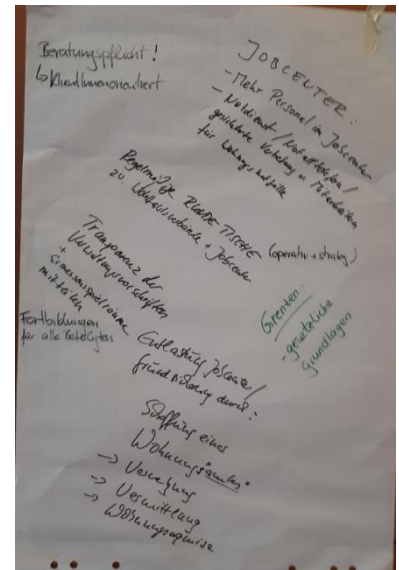 Beratungspflicht!
↳ KlientInnenorientiert
JOBCENTER:
- Mehr Personal im Jobcenter
- Notdienst / Notfalltelefon /
gesicherte Vertretung v. Mitarbeitern
für Wohnungsnotfälle
Regelmäßige RUNDE TISCHE (operativ + strateg.)
zw. Wohlfahrtsverbände + Jobcenter
Transparenz der
Verwaltungsvorschriften
+ Ermessensspielräume
mitteilen
Fortbildungen
für alle Beteiligten
Grenzen:
- gesetzliche
Grundlagen
Entlastung Jobcenter /
Grundsicherung durch:
Schaffung eines
Wohnungsamtes
→ Versorgung
→ Vermittlung
→ Wohnungsaquise